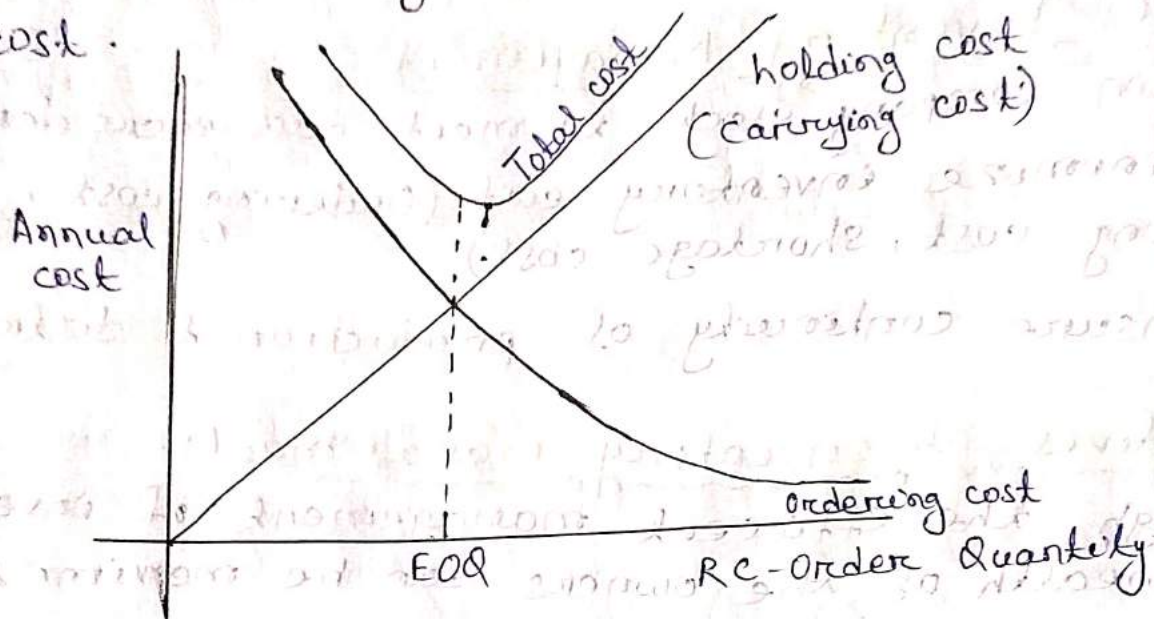 cost.
Total cost
holding cost
(carrying cost)
Annual
cost
ordering cost
EOQ
RC-Order Quantity